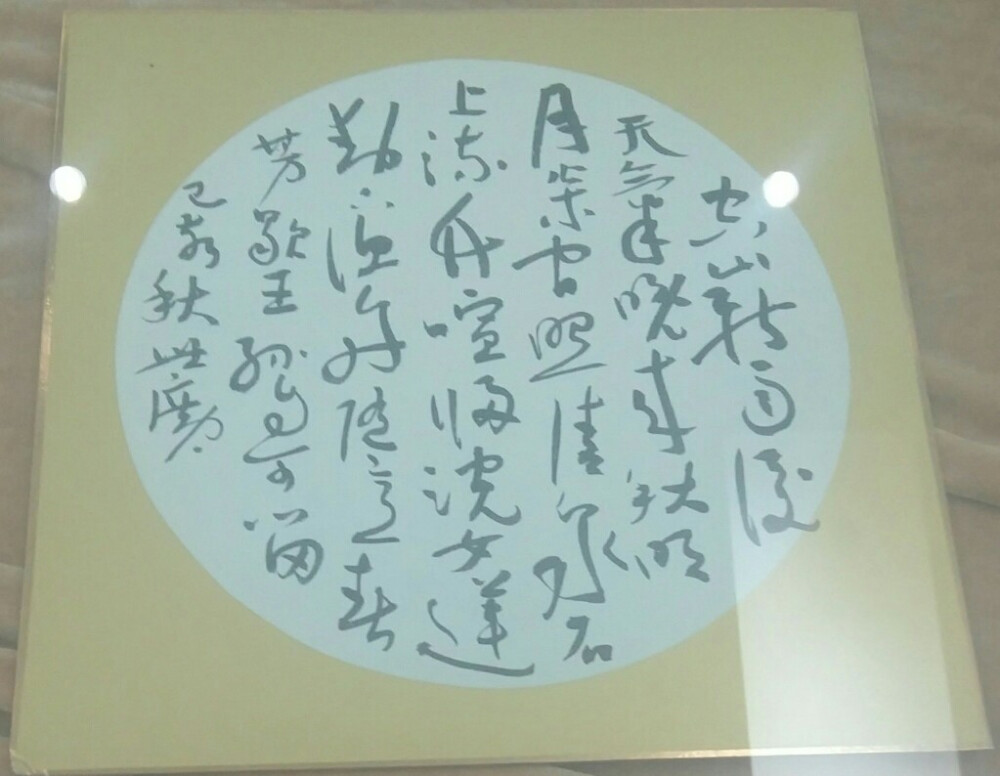 空山新雨後
天氣晚來秋明
月松間照清泉石
上流竹喧歸浣女蓮
動下漁舟隨意春
芳歇王孫自可留
己亥秋世